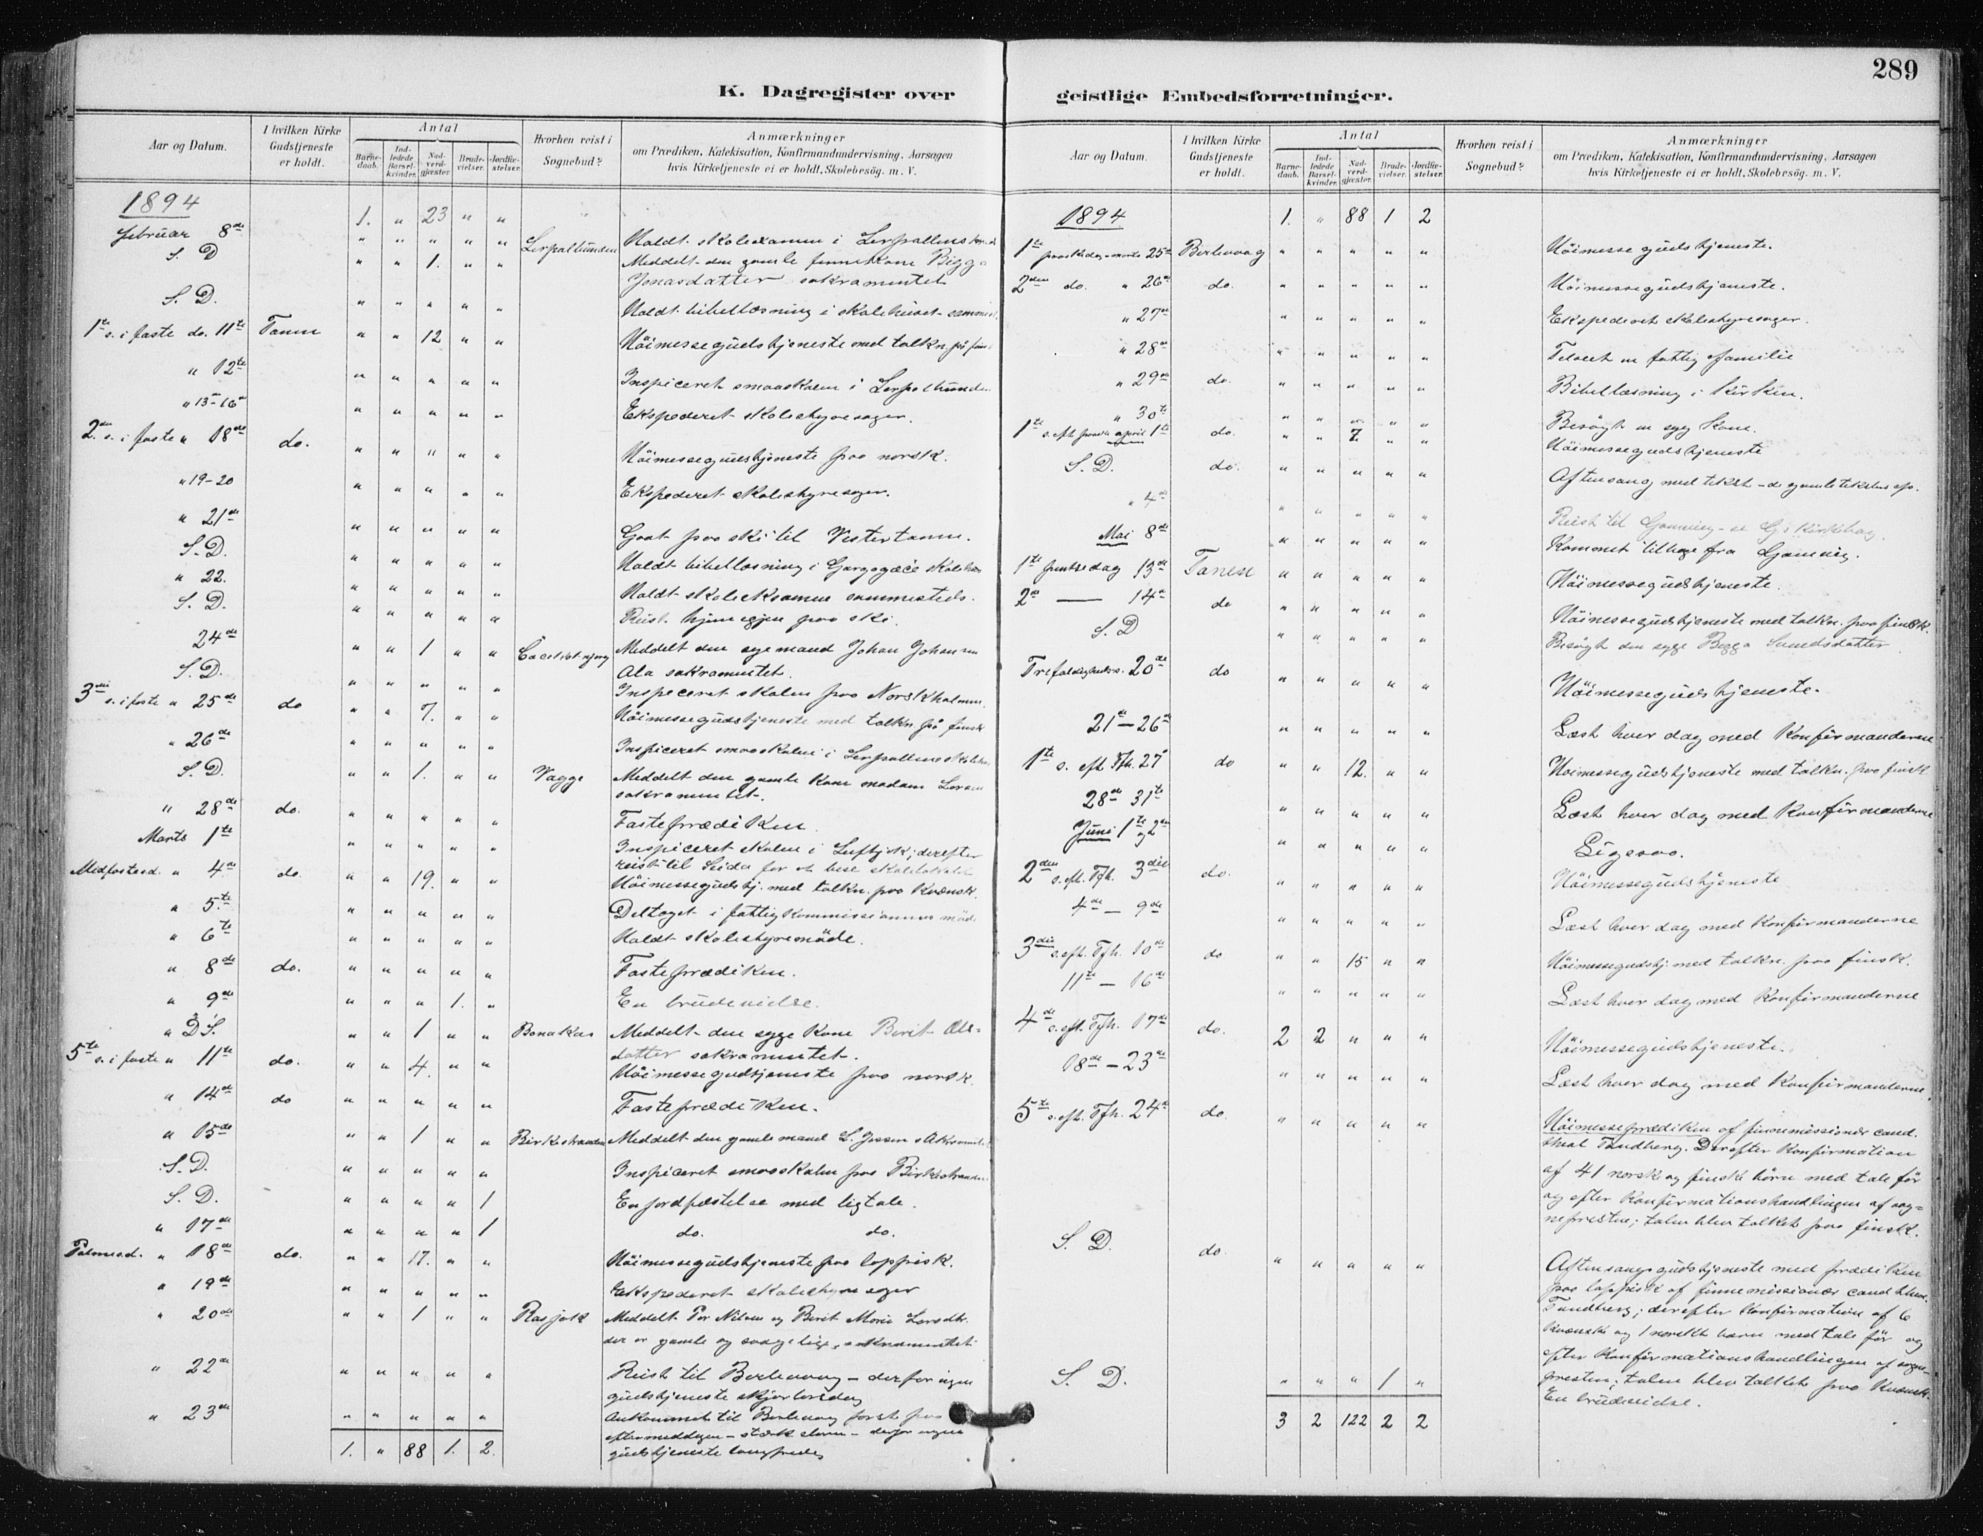 289
K. Dagregister over geistlige Embedsforretninger.
Aar og Datum. | I hvilken Kirke Gudstjeneste er holdt. | Antal | Barne-daab. | Ind-ledede Barsel-kvinder. | Nad-verd-gjester. | Brude-vielser. | Jordfæ-stelser. | Hvorhen reist i Sognebud? | Anmærkninger om Prædiken, Katekisation, Konfirmandundervisning, Aarsagen hvis Kirketjeneste ei er holdt, Skolebesøg. m. V.
1894 1. " 23 " "
Februar 8de " " " " " Holdt skoleexamen i
S. D " " 1. " " Meddelt den gamle finnekone Bigga
Jonasdatter sakramentet
S. D. " " " " " Holdt bibellæsning i skolehuset
1ste s. i faste do. 11te Tanen " " 12 " " Höimessegudstjeneste med tolkn. på
" 12te " " " " " Inspiceret smaaskolen i
" 13-16 " " " " " Ekspederet skolestyresager.
2den s. i faste " 18de do. " " " " " Höimessegudstjeneste paa norsk.
" 19-20 " " " " " Ekspederet skolestyresager.
" 21de " " " " " Gaat paa ski til Vestertanen.
S. D. " " " " " Holdt bibellæsning i
" 22. " " " " " Holdt skoleeksamen sammesteds.
S. D. " " " " " Reist hjem igjen paa ski.
24de " " 1 " " Meddelt den syge mand Johan Johansen
Ala sakramentet.
S. D. " " " " " Inspiceret skolen paa Norskholmen.
3die s. i faste " 25de do " " 7. " " Höimessegudstjeneste med tolkn. på finsk
" 26de " " " " " Inspiceret smaaskolen i
S. D. " " 1. " " Vagge Meddelt den gamle kone madam
sakramentet.
" 28de do. " " " " " Fasteprædiken.
Marts 1ste " " " " " Inspiceret skolen i Luftjok; derefter
reist til Seida for at bese skolelokalet
Midfastesd. " 4de do. " " 19. " " Höimessegudstj. med tolkn. paa kvænsk.
" 5te " " " " " Deltaget i fattigkommissionens möde
" 6te " " " " " Holdt skolestyremöde.
" 8de do. " " " " " Fasteprædiken.
" 9de " " " 1. " En brudevielse.
" D.S. " " 1 " " Bonakas Meddelt den syge kone Berit Ole-
datter sakramentet.
5te s. i faste " 11te do. " " 4. " " Höimessegudstjeneste paa norsk.
" 14de do " " " " " Fasteprædiken.
" 15de " " 1 " " Birkestranden Meddelt den gamle mand
S. D. " " " " " Inspiceret smaaskolen paa Birkestranden
S. D. " " " " 1 En jordfæstelse med ligtale.
" 17de " " " " 1 do. do.
Palmesd. " 18de do. " " 17. " " Höimessegudstjeneste paa lappisk.
" 19de " " " " " Ekspederet skolestyresager
" 20de " " 1 " " Rasjok Meddelt Per Nilsen og Berit Marie Larsdtr.
der er gamle og svagelige, sakramentet
" 22de " " " " " Reist til Berlevaag – derfor ingen
gudstjeneste skjærtorsdag
" 23de " " " " " Ankommet til Berlevaag först paa
eftermiddagen – stærk storm – derfor ingen
1. " 88 1. 2. gudstjeneste langfredag
Aar og Datum. | I hvilken Kirke Gudstjeneste er holdt. | Antal | Barne-daab. | Ind-ledede Barsel-kvinder. | Nad-verd-gjester. | Brude-vielser. | Jordfæ-stelser. | Hvorhen reist i Sognebud? | Anmærkninger om Prædiken, Katekisation, Konfirmandundervisning, Aarsagen hvis Kirketjeneste ei er holdt, Skolebesøg. m. V.
1894 1. " 88 1 2
1ste paaskedag marts 25de Berlevaag " " " " " Höimessegudstjeneste.
2den do. " 26de do. " " " " " Höimessegudstjeneste.
" 27de " " " " " Ekspederet skolestyresager.
" 28de " " " " " en fattig familie
" 29de do. " " " " " Bibellæsning i kirken.
" 30te " " " " " Besögt en syg kone.
1ste s. eft. paaske april 1ste do. " " 7. " " Höimessegudstjeneste
S. D. do. " " " " " Aftensang med tekst
" 4de " " " " " Reist til Gamvig
Mai 8de " " " " " Kommet tilbage fra Gamvig.
1ste pintsedag 13de Tanen " " " " " Höimessegudstjeneste.
2de — 14de do " " " " " Höimessegudstjeneste med tolkn. paa finsk.
S. D " " " " " Besögt den syge Bigga
Trefoldighedss. 20de do " " " " " Höimessegudstjeneste.
21de – 26de " " " " " Læst hver dag med konfirmanderne
1ste s. eft. Trfh. 27de do " " 12. " " Höimessegudstjeneste med tolkn. paa finsk
28de 31te " " " " " Læst hver dag med konfirmanderne
Juni 1ste og 2den " " " " " Ligesaa.
2den s. eft. Trfh. 3die do. " " " " " Höimessegudstjeneste
4de – 9de " " " " " Læst hver dag med konfirmanderne
3die s. eft. Trfh. 10de do " " 15 " " Höimessegudstj. med tolkn. paa finsk.
11te – 16de " " " " " Læst hver dag med konfirmanderne
4de s. eft. Trfh. 17de do. 2 2 " " " Höimessegudstjeneste.
18de – 23de " " " " " Læst hver dag med konfirmanderne.
5te s. eft. Trfh. 24de do. " " " " " Höimesseprædiken af finnemissionær cand.
theol. Tandberg. Derefter konfirmation
af 41 norsk og finske börn med tale för
og efter konfirmationshandlingen af sog-
nepresten; talen blev tolket paa finsk.
S. D. do. " " " " " Aftensangsgudstjeneste med prædiken
paa lappisk af finnemissionær cand. theol.
Tandberg; derefter konfirmation af 6
kvænske og 1 norskt barn med tale för og
efter konfirmationshandlingen af sogne-
presten; talen blev tolket paa kvænsk.
S. D. " " " 1 " En brudevielse.
3 2 122 2 2